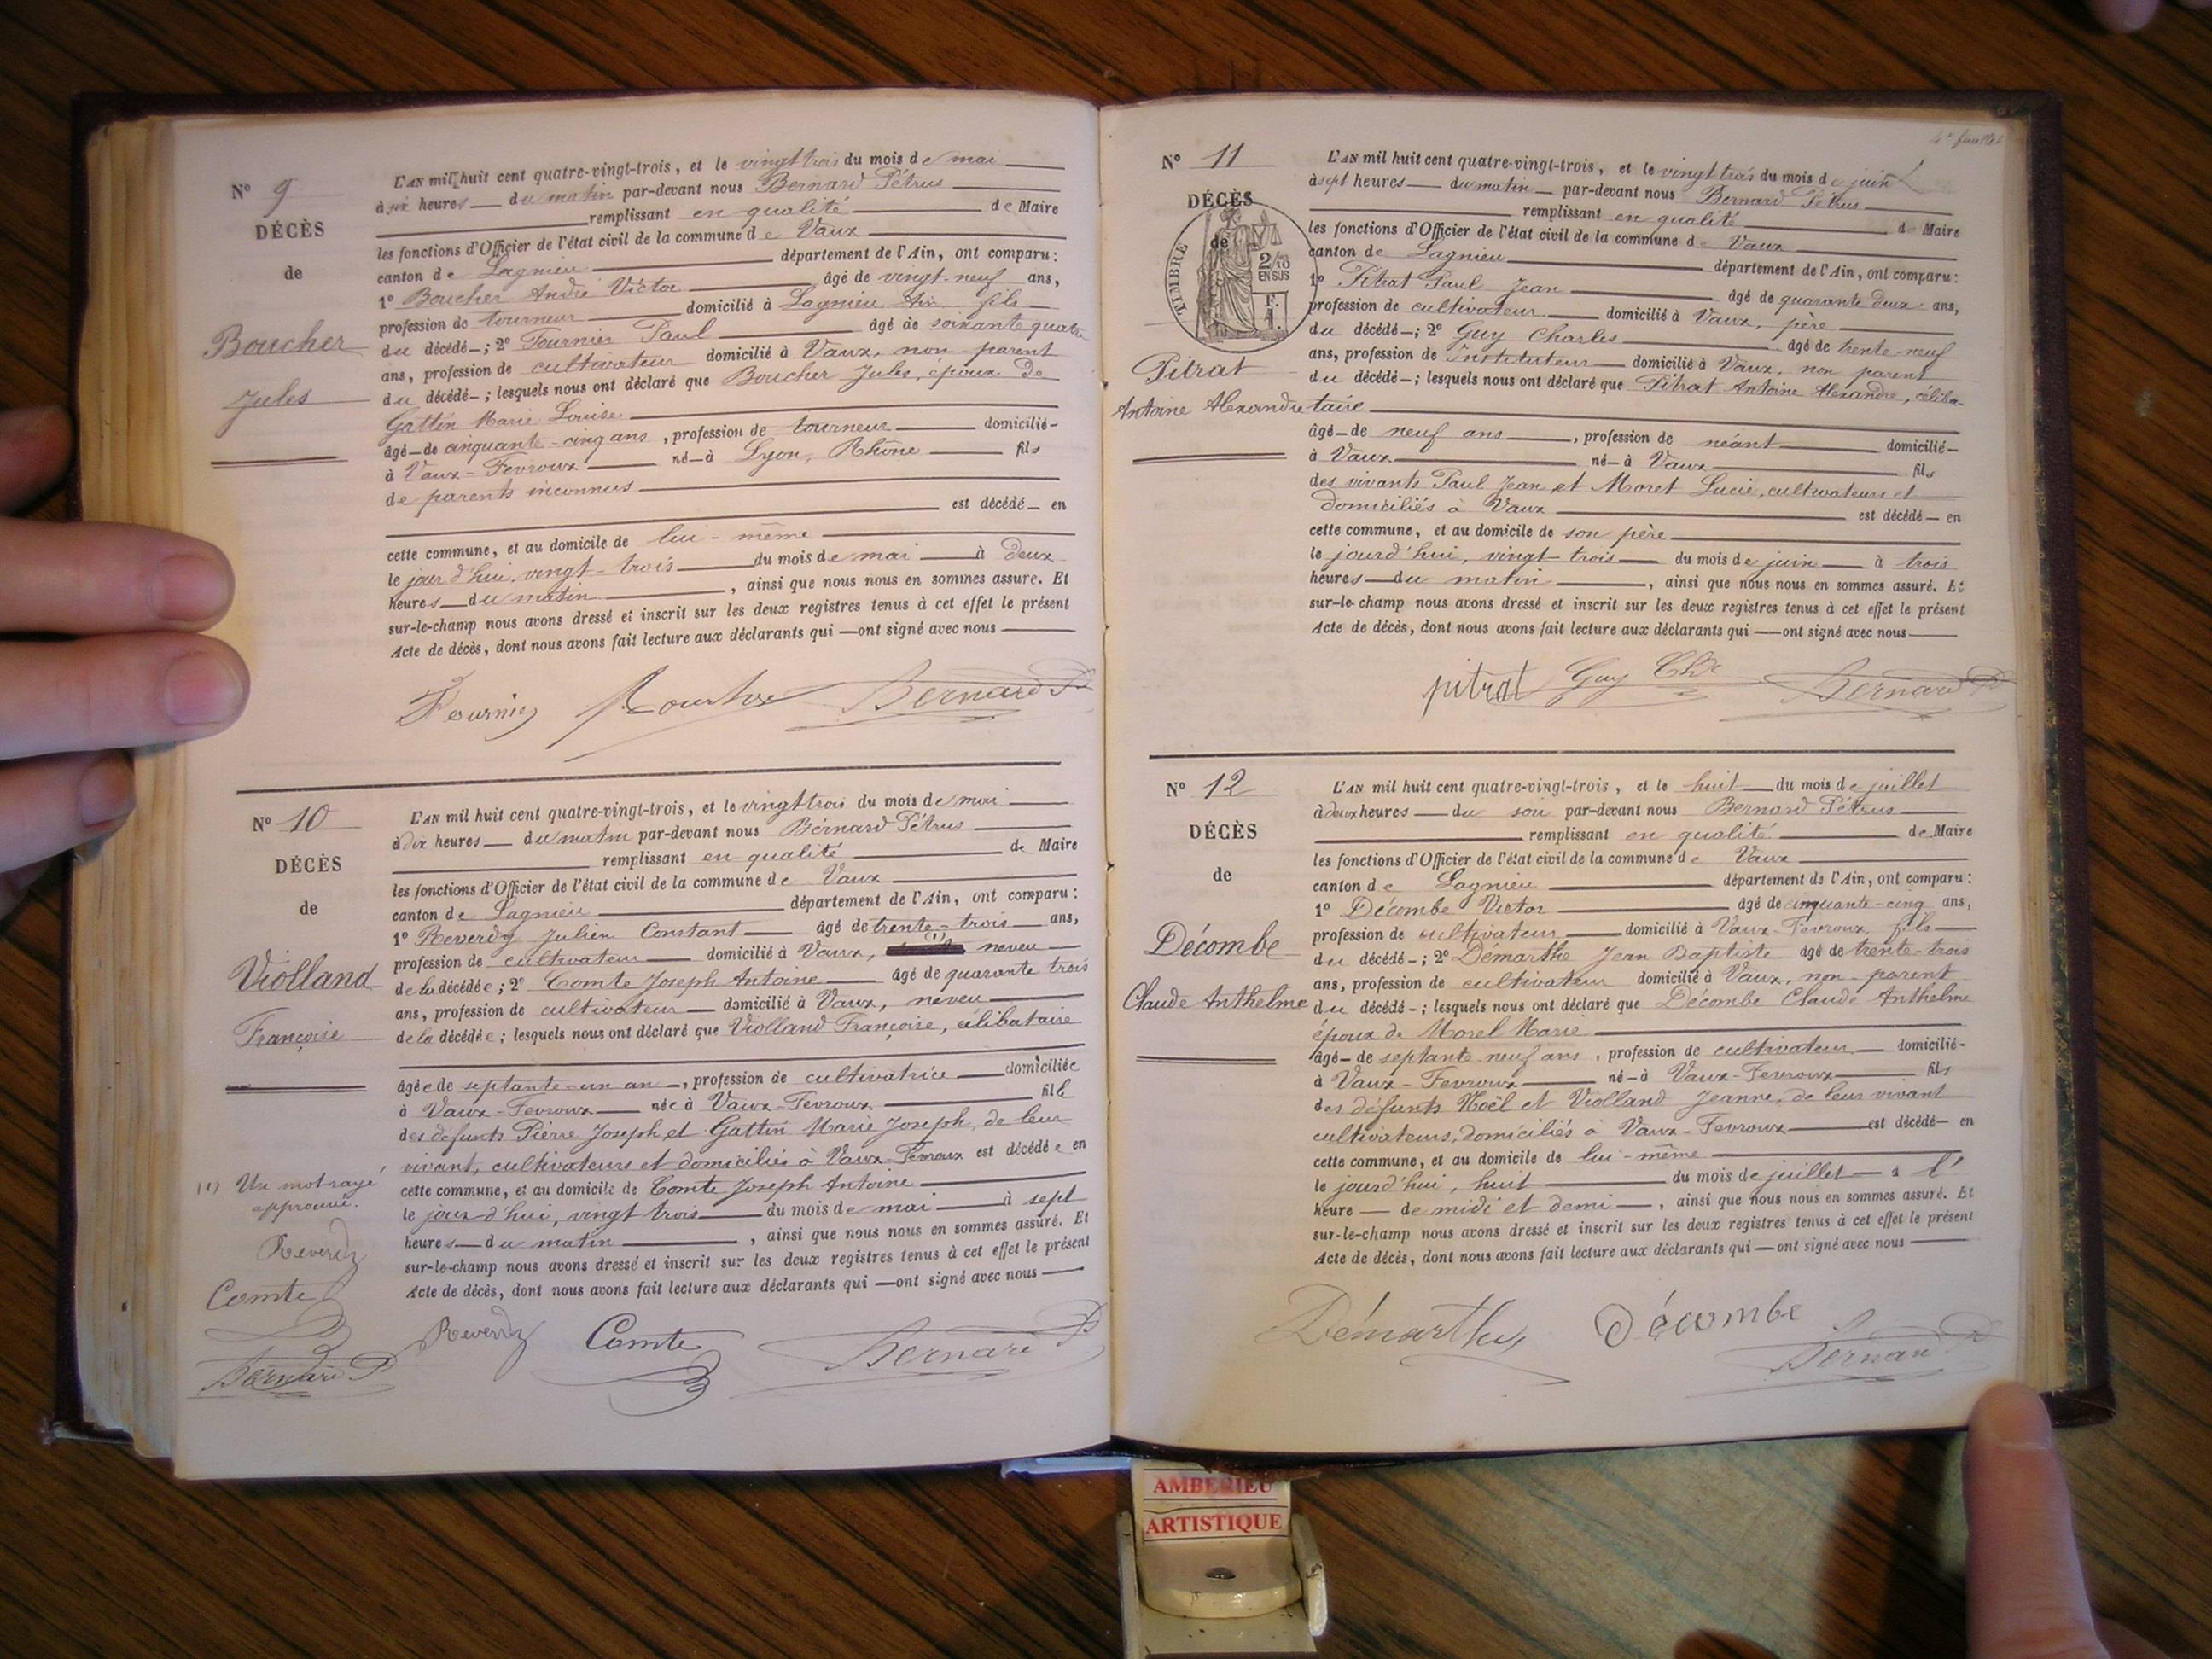 N° 9
DÉCÈS
de
Boucher
Jules
L'AN mil huit cent quatre-vingt-trois, et le vingt trois du mois de mai
à six heures du matin par-devant nous Bernard Pétrus
remplissant en qualité de Maire
les fonctions d'Officier de l'état civil de la commune de Vaux
canton de Lagnieu département de l'Ain, ont comparu:
1° Boucher André Victor âgé de vingt-neuf ans,
profession de tourneur domicilié à Lagnieu Ain fils
du décédé; 2° Tournier Paul âgé de soixante quatre
ans, profession de cultivateur domicilié à Vaux, non parent
du décédé; lesquels nous ont déclaré que Boucher Jules, époux de
Gattin Marie Louise
âgé de cinquante-cinq ans, profession de tourneur domicilié
à Vaux-Fevroux né à Lyon, Rhône fils
de parents inconnus
est décédé en
cette commune, et au domicile de lui-même
le jour d'hui, vingt-trois du mois de mai à deux
heures du matin, ainsi que nous nous en sommes assuré. Et
sur-le-champ nous avons dressé et inscrit sur les deux registres tenus à cet effet le présent
Acte de décès, dont nous avons fait lecture aux déclarants qui ont signé avec nous
Tournier Boucher Bernard P
N° 10
DÉCÈS
de
Violland
Françoise
L'AN mil huit cent quatre-vingt-trois, et le vingt trois du mois de mai
à dix heures du matin par-devant nous Bernard Pétrus
remplissant en qualité de Maire
les fonctions d'Officier de l'état civil de la commune de Vaux
canton de Lagnieu département de l'Ain, ont comparu:
1° Reverdy Julien Constant âgé de trente-trois ans,
profession de cultivateur domicilié à Vaux, (1) neveu
de la décédée; 2° Comte Joseph Antoine âgé de quarante trois
ans, profession de cultivateur domicilié à Vaux, neveu
de la décédée; lesquels nous ont déclaré que Violland Françoise, célibataire
âgée de septante-un an, profession de cultivatrice domiciliée
à Vaux-Fevroux née à Vaux-Fevroux fille
des défunts Pierre Joseph et Gattin Marie Joseph, de leur
vivant, cultivateurs et domiciliés à Vaux-Fevroux est décédée en
cette commune, et au domicile de Comte Joseph Antoine
le jour d'hui, vingt trois du mois de mai à sept
heures du matin, ainsi que nous nous en sommes assuré. Et
sur-le-champ nous avons dressé et inscrit sur les deux registres tenus à cet effet le présent
Acte de décès, dont nous avons fait lecture aux déclarants qui ont signé avec nous
(1) Un mot rayé
approuvé.
Reverdy
Comte
Bernard P
Reverdy Comte Bernard P
4e feuillet
N° 11
DÉCÈS
de
TIMBRE
2/10
EN SUS
F.
1.
Pitrat
Antoine Alexandre
L'AN mil huit cent quatre-vingt-trois, et le vingt trois du mois de juin
à sept heures du matin par-devant nous Bernard Pétrus
remplissant en qualité de Maire
les fonctions d'Officier de l'état civil de la commune de Vaux
canton de Lagnieu département de l'Ain, ont comparu:
1° Pitrat Paul Jean âgé de quarante deux ans,
profession de cultivateur domicilié à Vaux, père
du décédé; 2° Guy Charles âgé de trente-neuf
ans, profession de Instituteur domicilié à Vaux, non parent
du décédé; lesquels nous ont déclaré que Pitrat Antoine Alexandre, céliba-
taire
âgé de neuf ans, profession de néant domicilié
à Vaux né à Vaux fils
des vivants Paul Jean et Moret Lucie, cultivateurs et
domiciliés à Vaux est décédé en
cette commune, et au domicile de son père
le jourd'hui, vingt-trois du mois de juin à trois
heures du matin, ainsi que nous nous en sommes assuré. Et
sur-le-champ nous avons dressé et inscrit sur les deux registres tenus à cet effet le présent
Acte de décès, dont nous avons fait lecture aux déclarants qui ont signé avec nous
pitrat Guy Chs Bernard P
N° 12
DÉCÈS
de
Décombe
Claude Anthelme
L'AN mil huit cent quatre-vingt-trois, et le huit du mois de juillet
à deux heures du soir par-devant nous Bernard Pétrus
remplissant en qualité de Maire
les fonctions d'Officier de l'état civil de la commune de Vaux
canton de Lagnieu département de l'Ain, ont comparu:
1° Décombe Victor âgé de cinquante-cinq ans,
profession de cultivateur domicilié à Vaux-Fevroux, fils
du décédé; 2° Démarthe Jean Baptiste âgé de trente-trois
ans, profession de cultivateur domicilié à Vaux, non-parent
du décédé; lesquels nous ont déclaré que Décombe Claude Anthelme
époux de Morel Marie
âgé de septante neuf ans, profession de cultivateur domicilié
à Vaux-Fevroux né à Vaux-Fevroux fils
des défunts Noël et Violland Jeanne, de leur vivant
cultivateurs, domiciliés à Vaux-Fevroux est décédé en
cette commune, et au domicile de lui-même
le jourd'hui, huit du mois de juillet à l'
heure de midi et demi, ainsi que nous nous en sommes assuré. Et
sur-le-champ nous avons dressé et inscrit sur les deux registres tenus à cet effet le présent
Acte de décès, dont nous avons fait lecture aux déclarants qui ont signé avec nous
Démarthe Décombe Bernard P
AMBERIEU
ARTISTIQUE